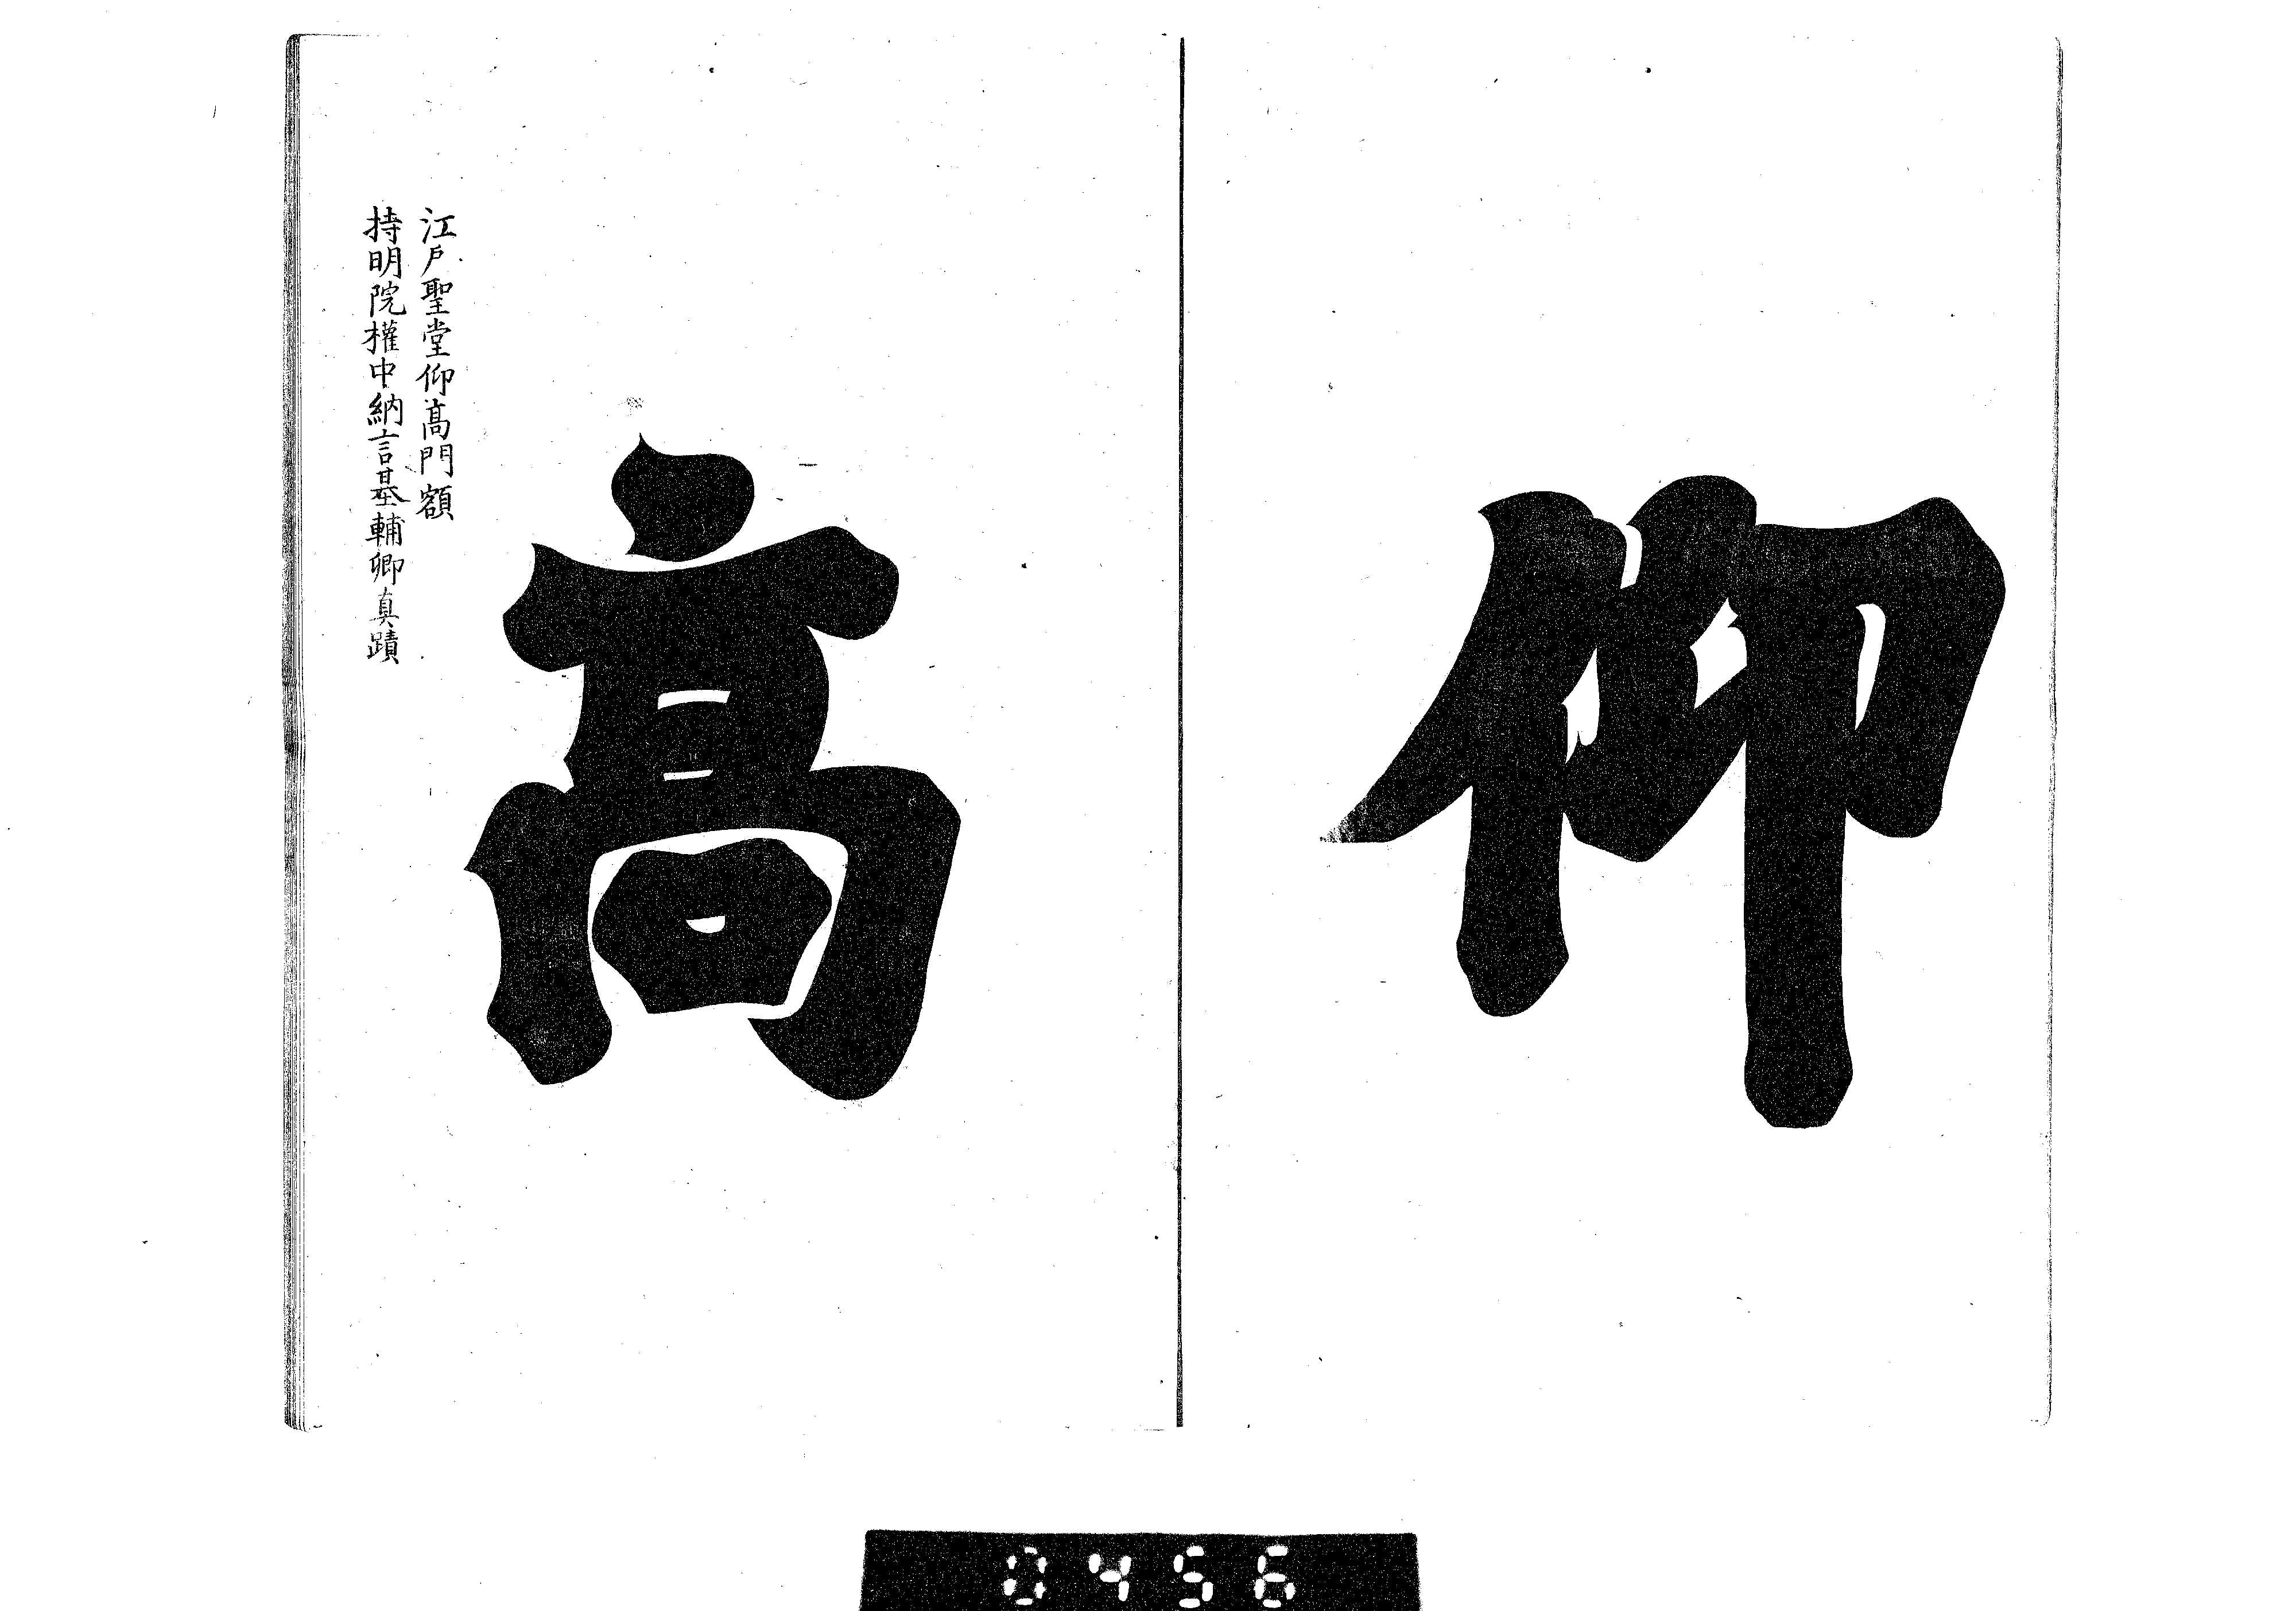 仰
髙
江戶聖堂仰髙門額
持明院權中納言基輔卿真蹟
0456